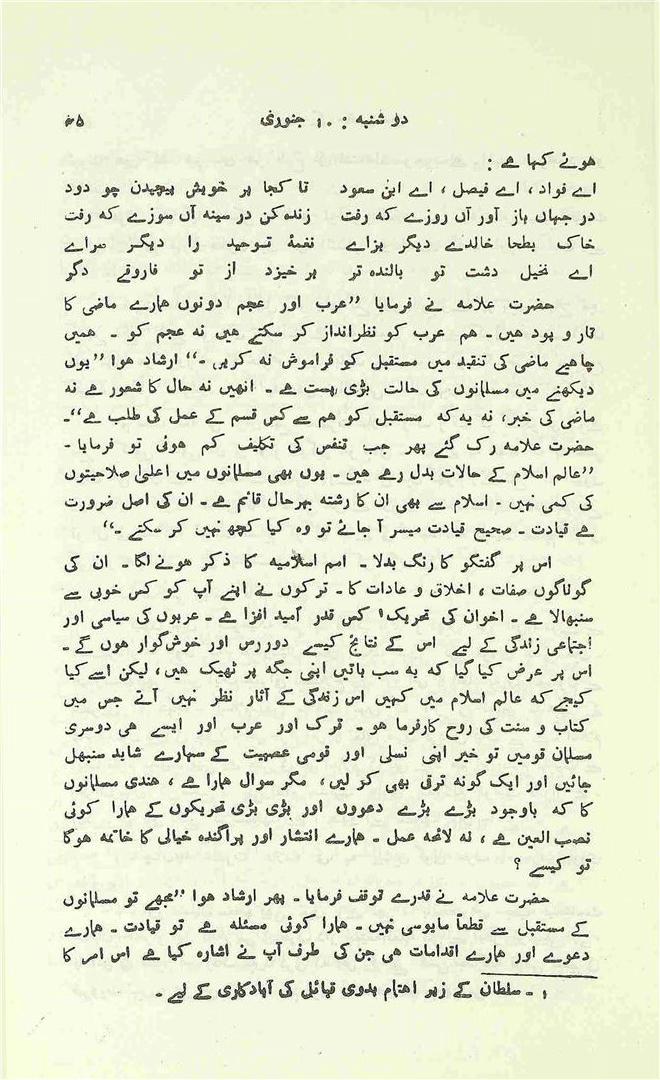 دو شنبہ : ۱۰ جنوری ۶۵
ہوئے کہا ہے :
اے فواد ، اے فیصل ، اے ابن سعود تا کجا بر خویش پیچیدن چو دود
در جہاں باز آور آں روزے کہ رفت زندہ کن در سینہ آں سوزے کہ رفت
خاک بطحا خالدے دیگر بزاے نغمۂ توحید را دیگر سراے
اے نخیل دشت تو بالندہ تر بر خیزد از تو فاروقے دگر
حضرت علامہ نے فرمایا ”عرب اور عجم دونوں ہمارے ماضی کا
تار و پود ہیں ۔ ہم عرب کو نظرانداز کر سکتے ہیں نہ عجم کو ۔ ہمیں
چاہیے ماضی کی تنقید میں مستقبل کو فراموش نہ کریں ۔“ ارشاد ہوا ”یوں
دیکھنے میں مسلمانوں کی حالت بڑی پست ہے ۔ انھیں نہ حال کا شعور ہے نہ
ماضی کی خبر، نہ یہ کہ مستقبل کو ہم سے کس قسم کے عمل کی طلب ہے“۔
حضرت علامہ رک گئے پھر جب تنفس کی تکلیف کم ہوئی تو فرمایا ۔
”عالم اسلام کے حالات بدل رہے ہیں ۔ یوں بھی مسلمانوں میں اعلیٰ صلاحیتوں
کی کمی نہیں ۔ اسلام سے بھی ان کا رشتہ بہرحال قائم ہے ۔ ان کی اصل ضرورت
ہے قیادت ۔ صحیح قیادت میسر آ جائے تو وہ کیا کچھ نہیں کر سکتے ۔“
اس پر گفتگو کا رنگ بدلا ۔ امم اسلامیہ کا ذکر ہونے لگا ۔ ان کی
گوناگوں صفات ، اخلاق و عادات کا ۔ ترکوں نے اپنے آپ کو کس خوبی سے
سنبھالا ہے ۔ اخوان کی تحریک۱ کس قدر امید افزا ہے ۔ عربوں کی سیاسی اور
اجتماعی زندگی کے لیے اس کے نتائج کیسے دور رس اور خوش گوار ہوں گے ۔
اس پر عرض کیا گیا کہ یہ سب باتیں اپنی جگہ پر ٹھیک ہیں ، لیکن اسے کیا
کیجے کہ عالم اسلام میں کہیں اس زندگی کے آثار نظر نہیں آتے جس میں
کتاب و سنت کی روح کارفرما ہو ۔ ترک اور عرب اور ایسے ہی دوسری
مسلمان قومیں تو خیر اپنی نسلی اور قومی عصبیت کے سہارے شاید سنبھل
جائیں اور ایک گونہ ترقی بھی کر لیں ، مگر سوال ہمارا ہے ، ہندی مسلمانوں
کا کہ باوجود بڑے بڑے دعووں اور بڑی بڑی تحریکوں کے ہمارا کوئی
نصب العین ہے ، نہ لائحہ عمل ۔ ہمارے انتشار اور پراگندہ خیالی کا خاتمہ ہوگا
تو کیسے ؟
حضرت علامہ نے قدرے توقف فرمایا ۔ پھر ارشاد ہوا ”مجھے تو مسلمانوں
کے مستقبل سے قطعاً مایوسی نہیں ۔ ہمارا کوئی مسئلہ ہے تو قیادت ۔ ہمارے
دعوے اور ہمارے اقدامات ہی جن کی طرف آپ نے اشارہ کیا ہے اس امر کا
۱ ۔ سلطان کے زیر اہتمام بدوی قبائل کی آبادکاری کے لیے ۔